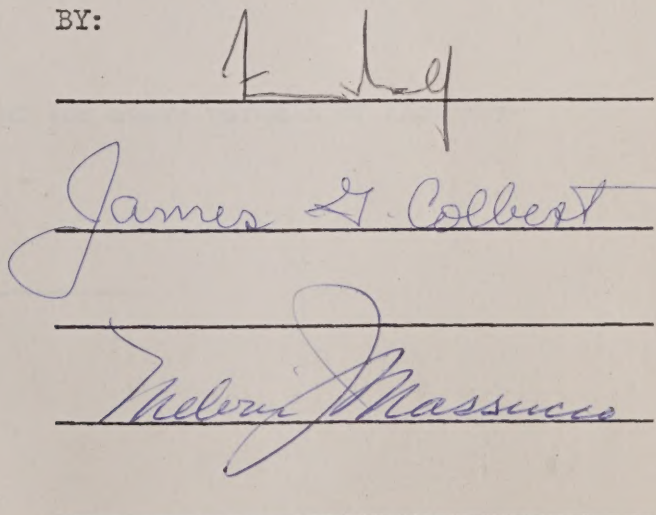 BY:
James G. Colbert
Melvin J. Massucco